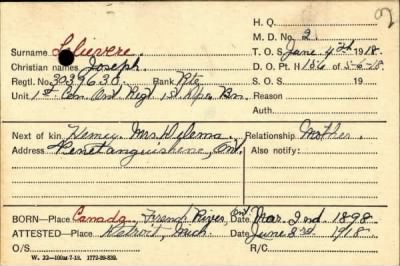 2
H. Q.
M. D. No. 2
Surname Lelievere. T. O. S. June 4th 1918.
Christian names Joseph. D. O. Pt. II 156 of 5-6-18
Regtl. No. 3039630. Rank Pte S. O. S. 19
Unit 1st Cen. Ont. Regt 1st Depot Bn. Reason
Auth.
Next of kin Mrs. Relationship Mother.
Address Penetanguishene, Ont. Also notify:
BORN—Place Canada, French River, Ont. Date Mar. 2nd 1898
ATTESTED—Place Detroit, Mich Date June 3rd 1918
O/S R/C
W. 22—100M-7-18. 1772-39-839.